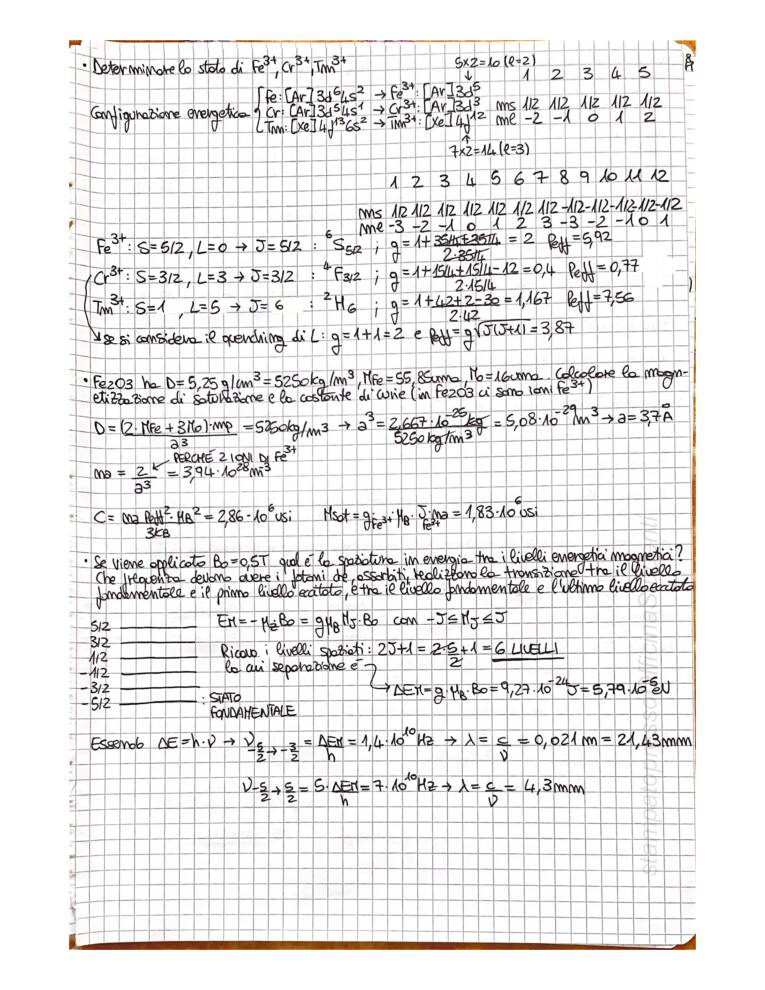 • Determinare lo stato di Fe³⁺, Cr³⁺, Tm³⁺
5x2=10 (l=2)
↓
1 2 3 4 5
Configurazione energetica { Fe: [Ar]3d⁶4s² → Fe³⁺: [Ar]3d⁵
Cr: [Ar]3d⁵4s¹ → Cr³⁺: [Ar]3d³ ms 1/2 1/2 1/2 1/2 1/2
Tm: [Xe]4f¹³6s² → Tm³⁺: [Xe]4f¹² ml -2 -1 0 1 2
↑
7x2=14 (l=3)
1 2 3 4 5 6 7 8 9 10 11 12
ms 1/2 1/2 1/2 1/2 1/2 1/2 1/2 -1/2 -1/2 -1/2 -1/2 -1/2
ml -3 -2 -1 0 1 2 3 -3 -2 -1 0 1
Fe³⁺: S=5/2, L=0 → J=5/2 : ⁶S5/2 ; g=1+(35/4+35/4)/(2·35/4) = 2 Peff=5,92
Cr³⁺: S=3/2, L=3 → J=3/2 : ⁴F3/2 ; g=1+(15/4+15/4-12)/(2·15/4)=0,4 Peff=0,77
Tm³⁺: S=1, L=5 → J=6 : ²H6 ; g=(1+42+2-30)/(2·42)=1,167 Peff=7,56
↘ se si considera il quenching di L: g=1+1=2 e Peff=g√J(J+1)=3,87
• Fe2O3 ha D=5,25 g/cm³=5250kg/m³, MFe=55,85uma, Mo=16uma. Calcolare la magn-
etizzazione di saturazione e la costante di curie (in Fe2O3 ci sono ioni Fe³⁺)
D=(2·MFe+3Mo)·mp/a³ =5250kg/m³ → a³=2,667·10⁻²⁵kg/5250kg/m³ =5,08·10⁻²⁹m³ → a=3,7Å
PERCHÉ 2 IONI DI Fe³⁺
na=2/a³ =3,94·10²⁸m⁻³
C=na Peff²·μB²/3kB =2,86·10⁶usi Msat=gFe³⁺·μB·JFe³⁺·na=1,83·10⁶usi
• Se viene applicato B0=0,5T qual è la spaziatura in energia tra i livelli energetici magnetici?
Che frequenza devono avere i fotoni che, assorbiti, realizzano la transizione tra il livello
fondamentale e il primo livello eccitato, e tra il livello fondamentale e l'ultimo livello eccitato
5/2 EM=-μz·B0=gμB MJ·B0 con -J≤MJ≤J
3/2
1/2 Ricavo i livelli spaziati: 2J+1=2·5/2+1=6 LIVELLI
-1/2 la cui separazione è
-3/2 → ΔEM=g·μB·B0=9,27·10⁻²⁴J=5,79·10⁻⁵eV
-5/2 : STATO
FONDAMENTALE
Essendo ΔE=h·ν → ν-5/2→-3/2=ΔEM/h=1,4·10¹⁰Hz → λ=c/ν=0,021m=21,43mm
ν-5/2→5/2=5·ΔEM/h=7·10¹⁰Hz → λ=c/ν=4,3mm